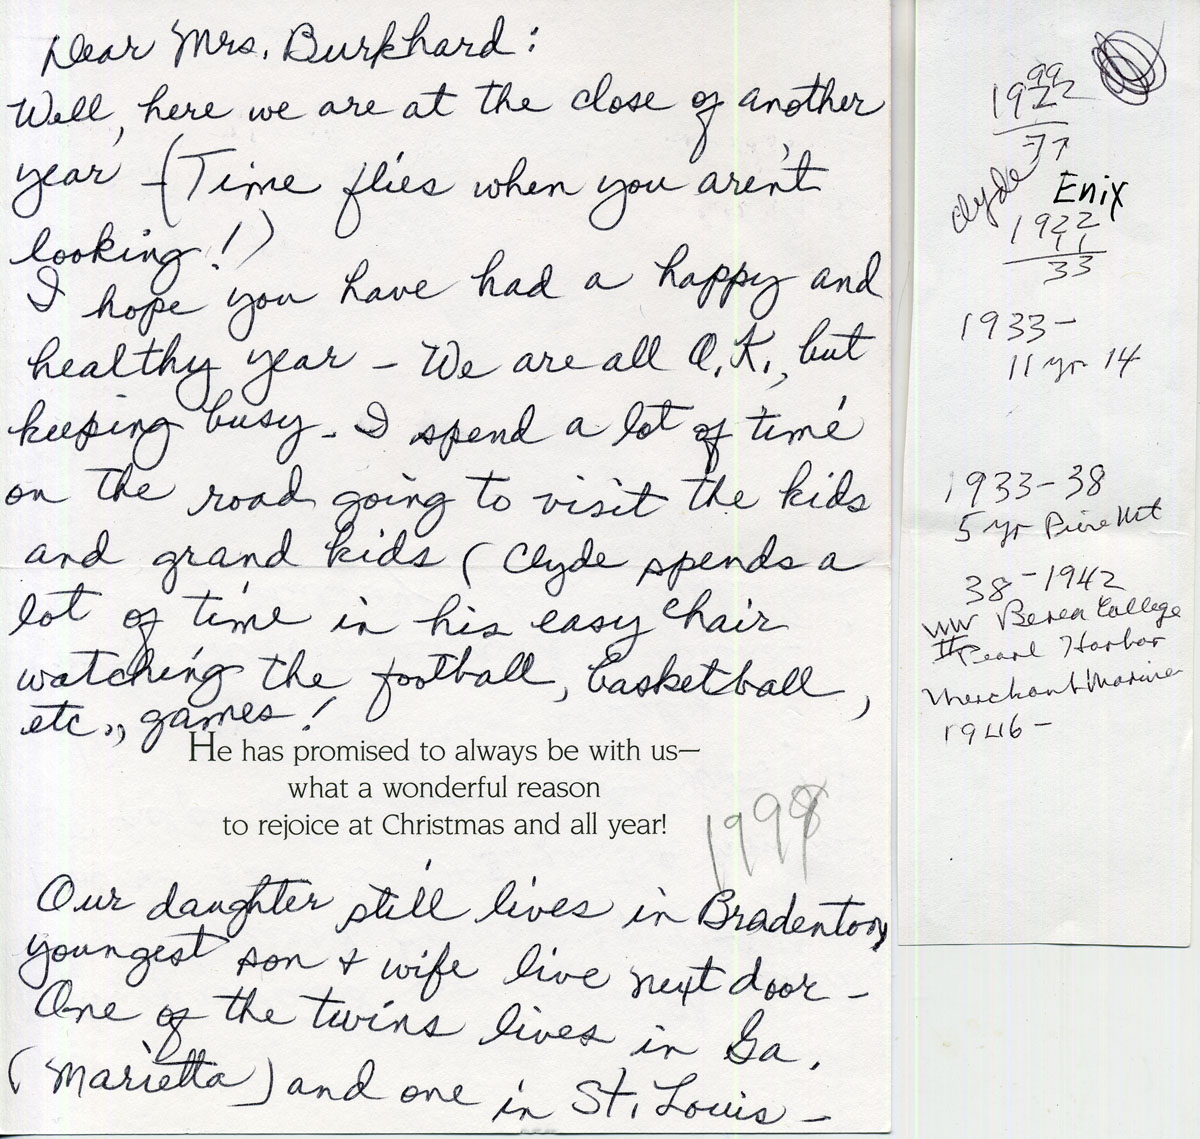 Dear Mrs. Burkhard:
Well, here we are at the close of another
year - (Time flies when you aren't
looking!)
I hope you have had a happy and
healthy year - We are all O.K., but
keeping busy - I spend a lot of time
on the road going to visit the kids
and grand kids (Clyde spends a
lot of time in his easy chair
watching the football, basketball,
etc., games!
He has promised to always be with us—
what a wonderful reason
to rejoice at Christmas and all year!
1998
Our daughter still lives in Bradenton,
youngest son + wife live next door -
One of the twins lives in Ga.
(Marietta) and one in St. Louis -
1999
22
77
Clyde Enix
1922
11
33
1933-
11 yr 14
1933-38
5 yr Pine Mt
38-1942
WW Berea College
II Pearl Harbor
Merchant Marine
1946-